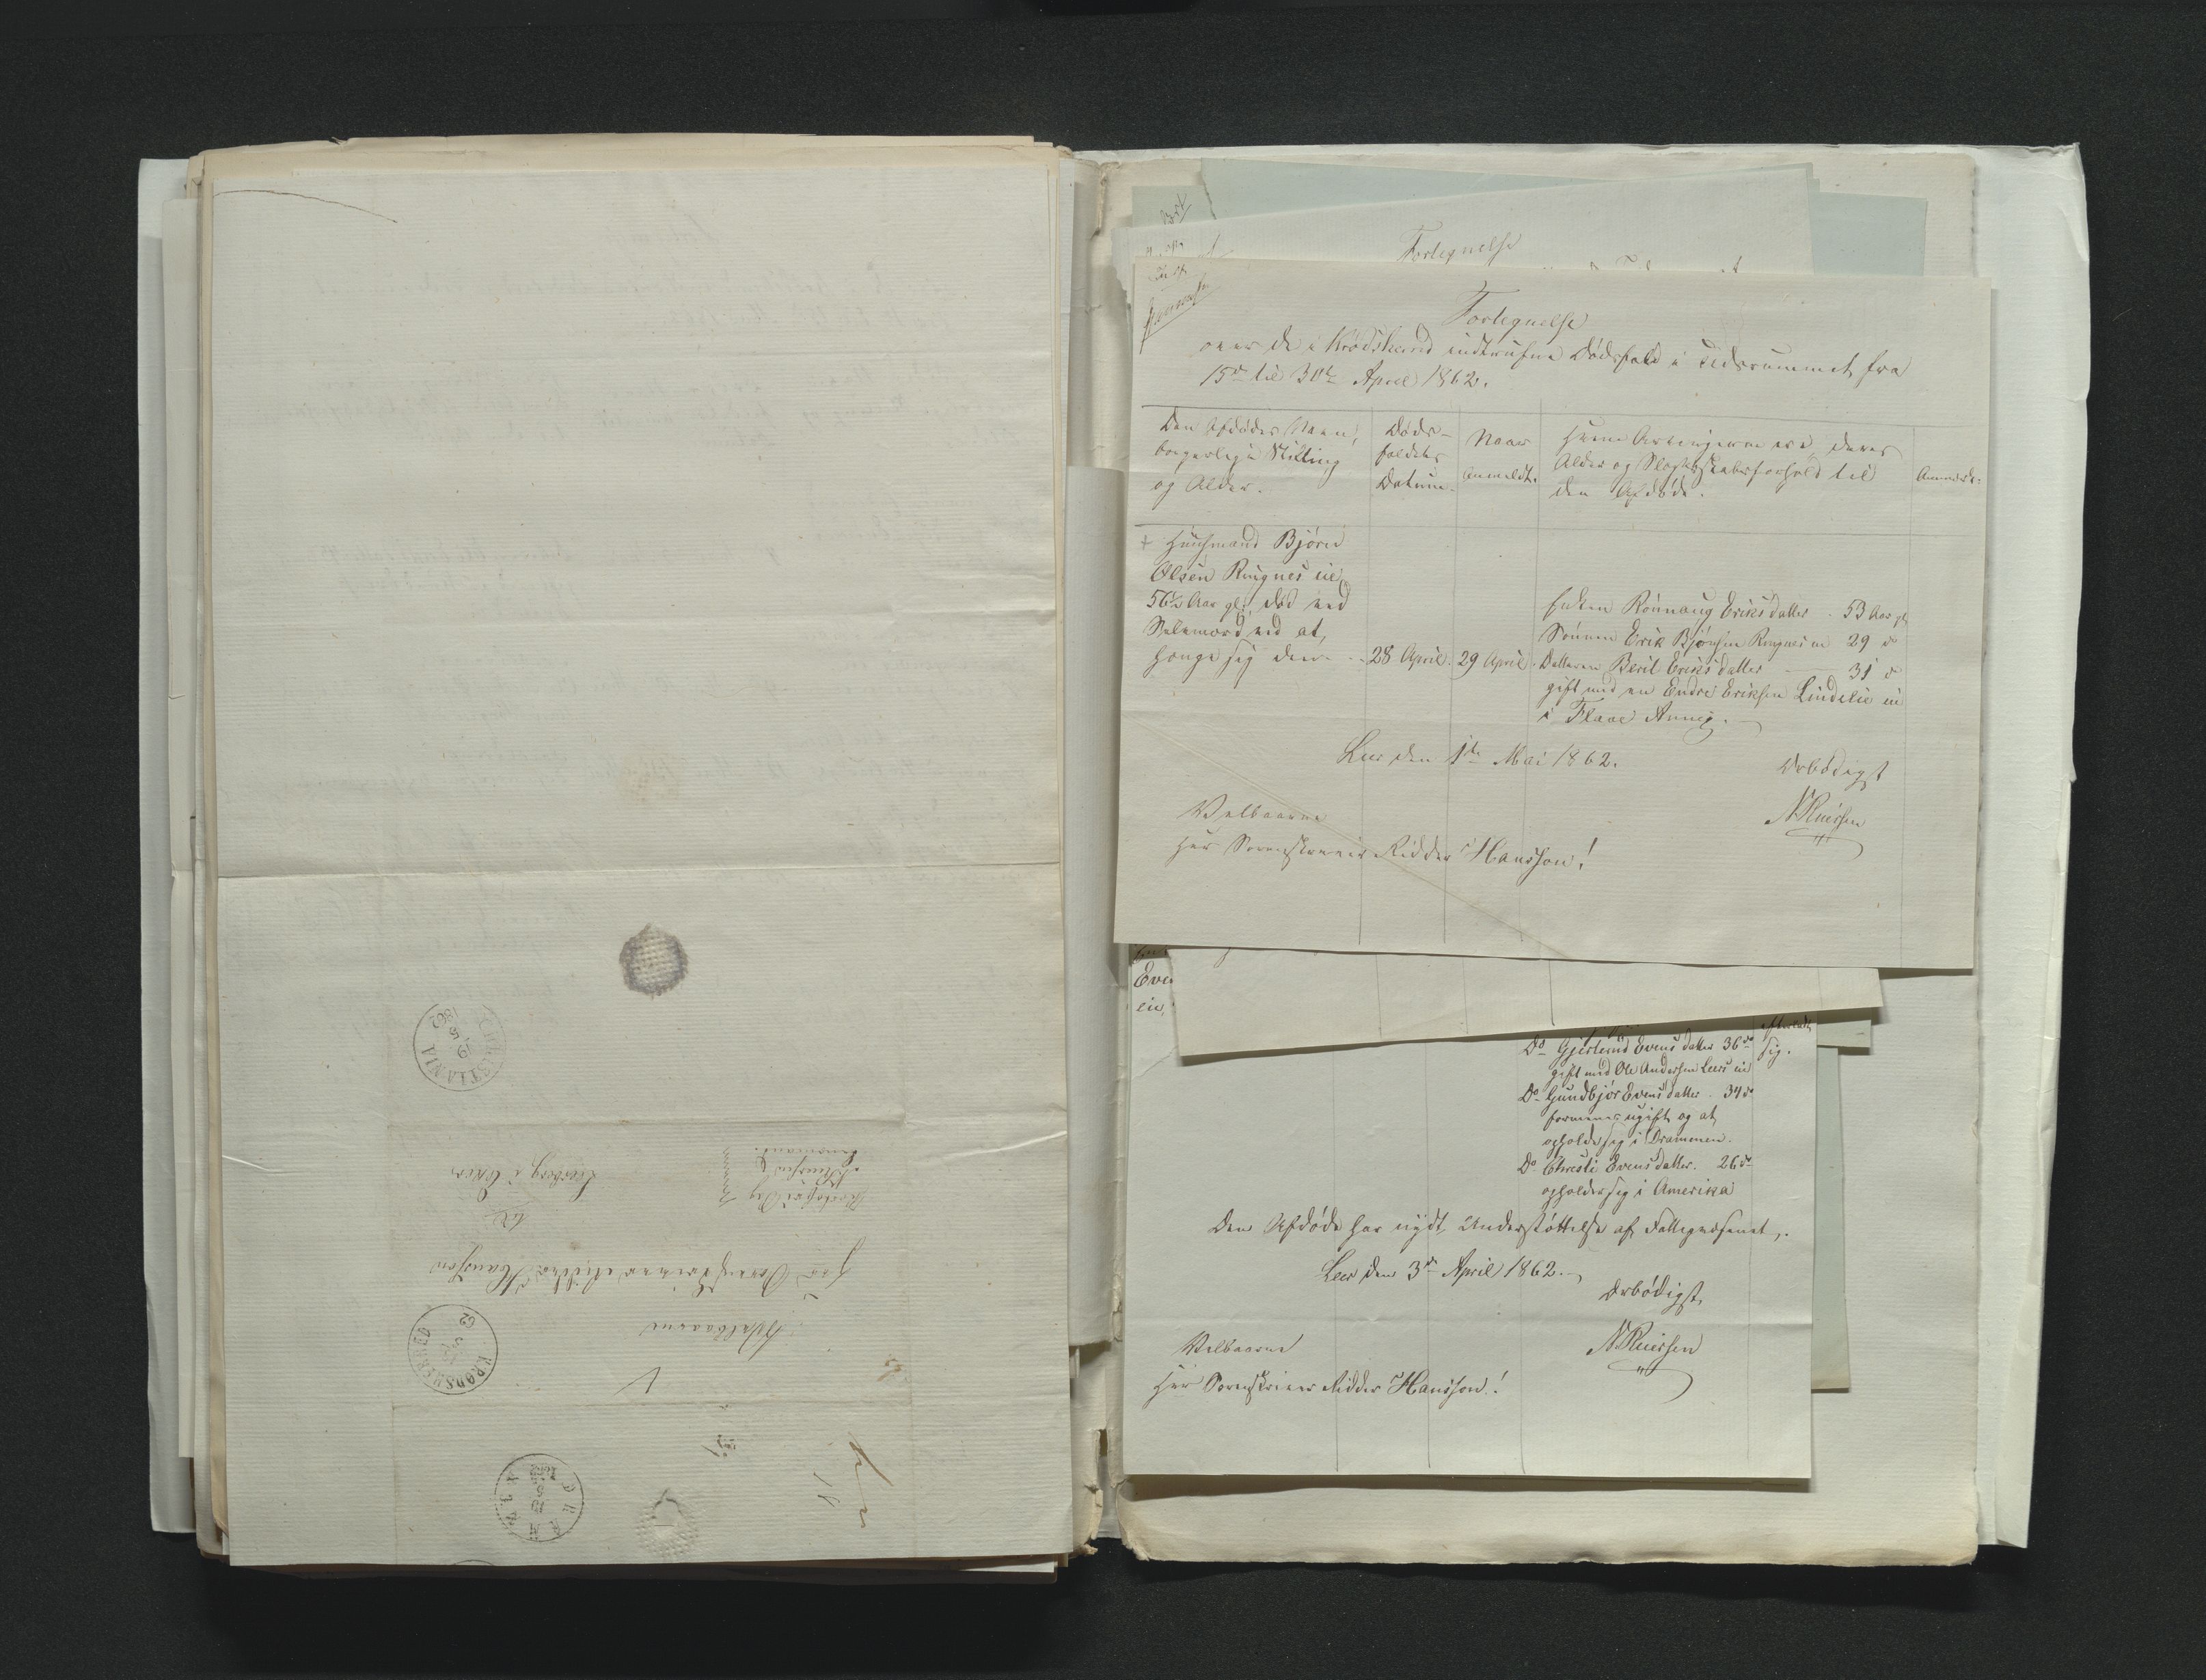 Fortegnelse
Fortegnelse
over de i Krødsherred indtrufne Dødsfald i Tidsrummet fra
15de til 30te April 1862.
Den Afdødes Navn,
borgerlige Stilling
og Alder.
Døds-
faldets
Datum.
Naar
anmeldt.
Hvem Arvingerne ere, deres
Alder og Slægtskabsforhold til
den Afdøde.
Anmærk:
+ Huusmand Bjørn
Olsen Ringnes eie
56½ Aar gl:, død ved
Selvmord ved at
hænge sig
28 April.
29 April.
Enken Rønnaug Eriksdatter 53 Aar gl.
Sønnen Erik Bjørnsen Ringnes eie 29 do
Datteren Berit Eriksdatter 31 do
gift med en Endre Eriksen Lindelie eie
i Flaae Annex.
Leer den 1ste Mai 1862.
Ærbødigst
N Ruissen
Velbaarne
Herr Sorenskriver Ridder Hansson!
Even
eie,
Do Gjertrud Evensdatter 36 do
gift med Ole Andersen Leers eie
sig.
Do Gundbjør Evensdatter 34 do
formenes ugift og at
opholde sig i Drammen.
Do Christi Evensdatter. 26 do
opholder sig i Amerika
Den Afdøde har nydt Understøttelse af Fattigvæsenet.
Leer den 3de April 1862.
Ærbødigst,
N Ruissen
Velbaarne
Herr Sorenskriver Ridder Hansson!
CHRISTIANIA
6 5 1862
Velbaarne
Herr Sorenskriver Ridder Hansson
KRØDSHERRED
62
DRAMMEN